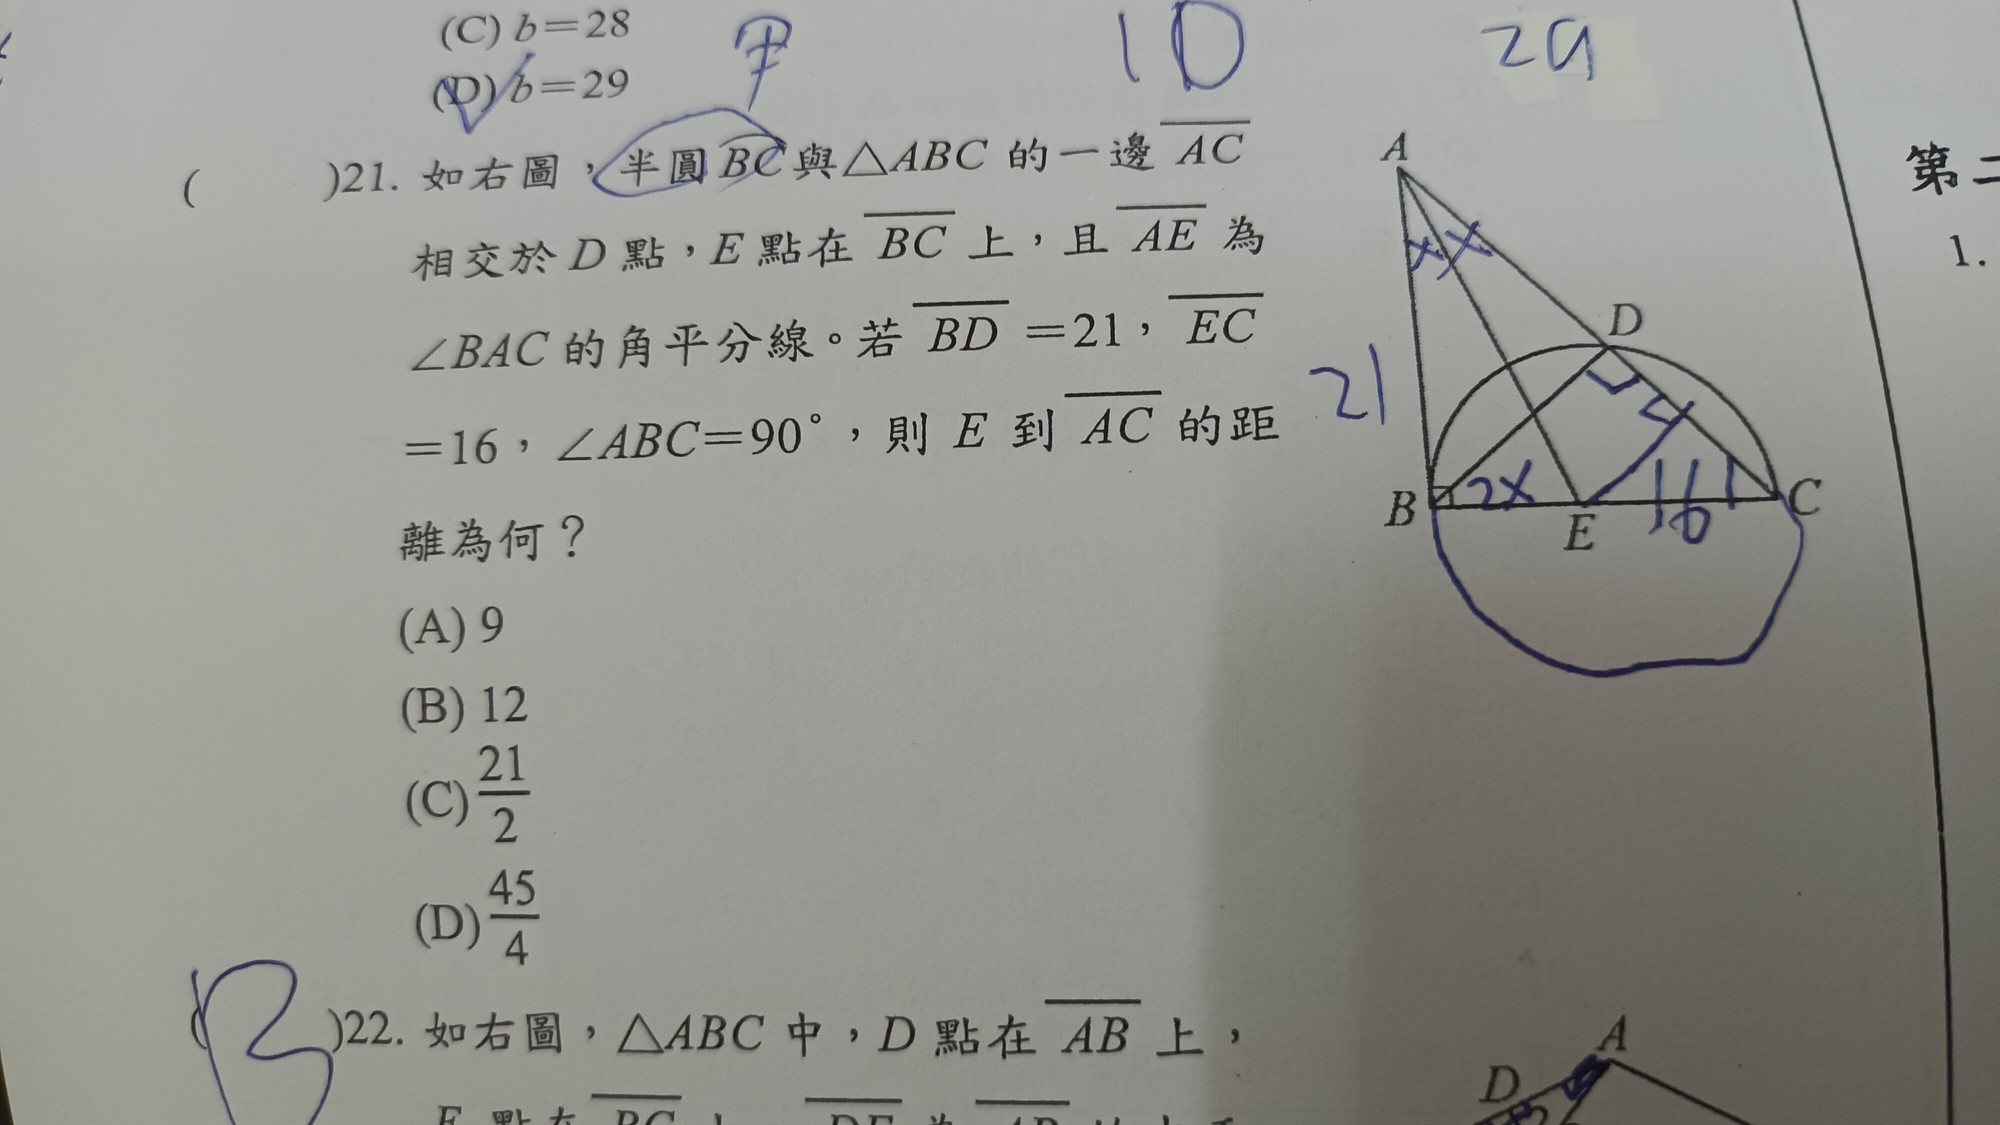 (C) b=28
(D) b=29
10
29
( )21. 如右圖，半圓BC與△ABC 的一邊 AC
相交於 D 點，E 點在 BC 上，且 AE 為
∠BAC 的角平分線。若 BD =21， EC
=16，∠ABC=90°，則 E 到 AC 的距
離為何？
(A) 9
(B) 12
(C) 21/2
(D) 45/4
A
D
B
E
C
x
x
21
2x
16
第二
1.
B
( )22. 如右圖，△ABC 中，D 點在 AB 上，
A
D